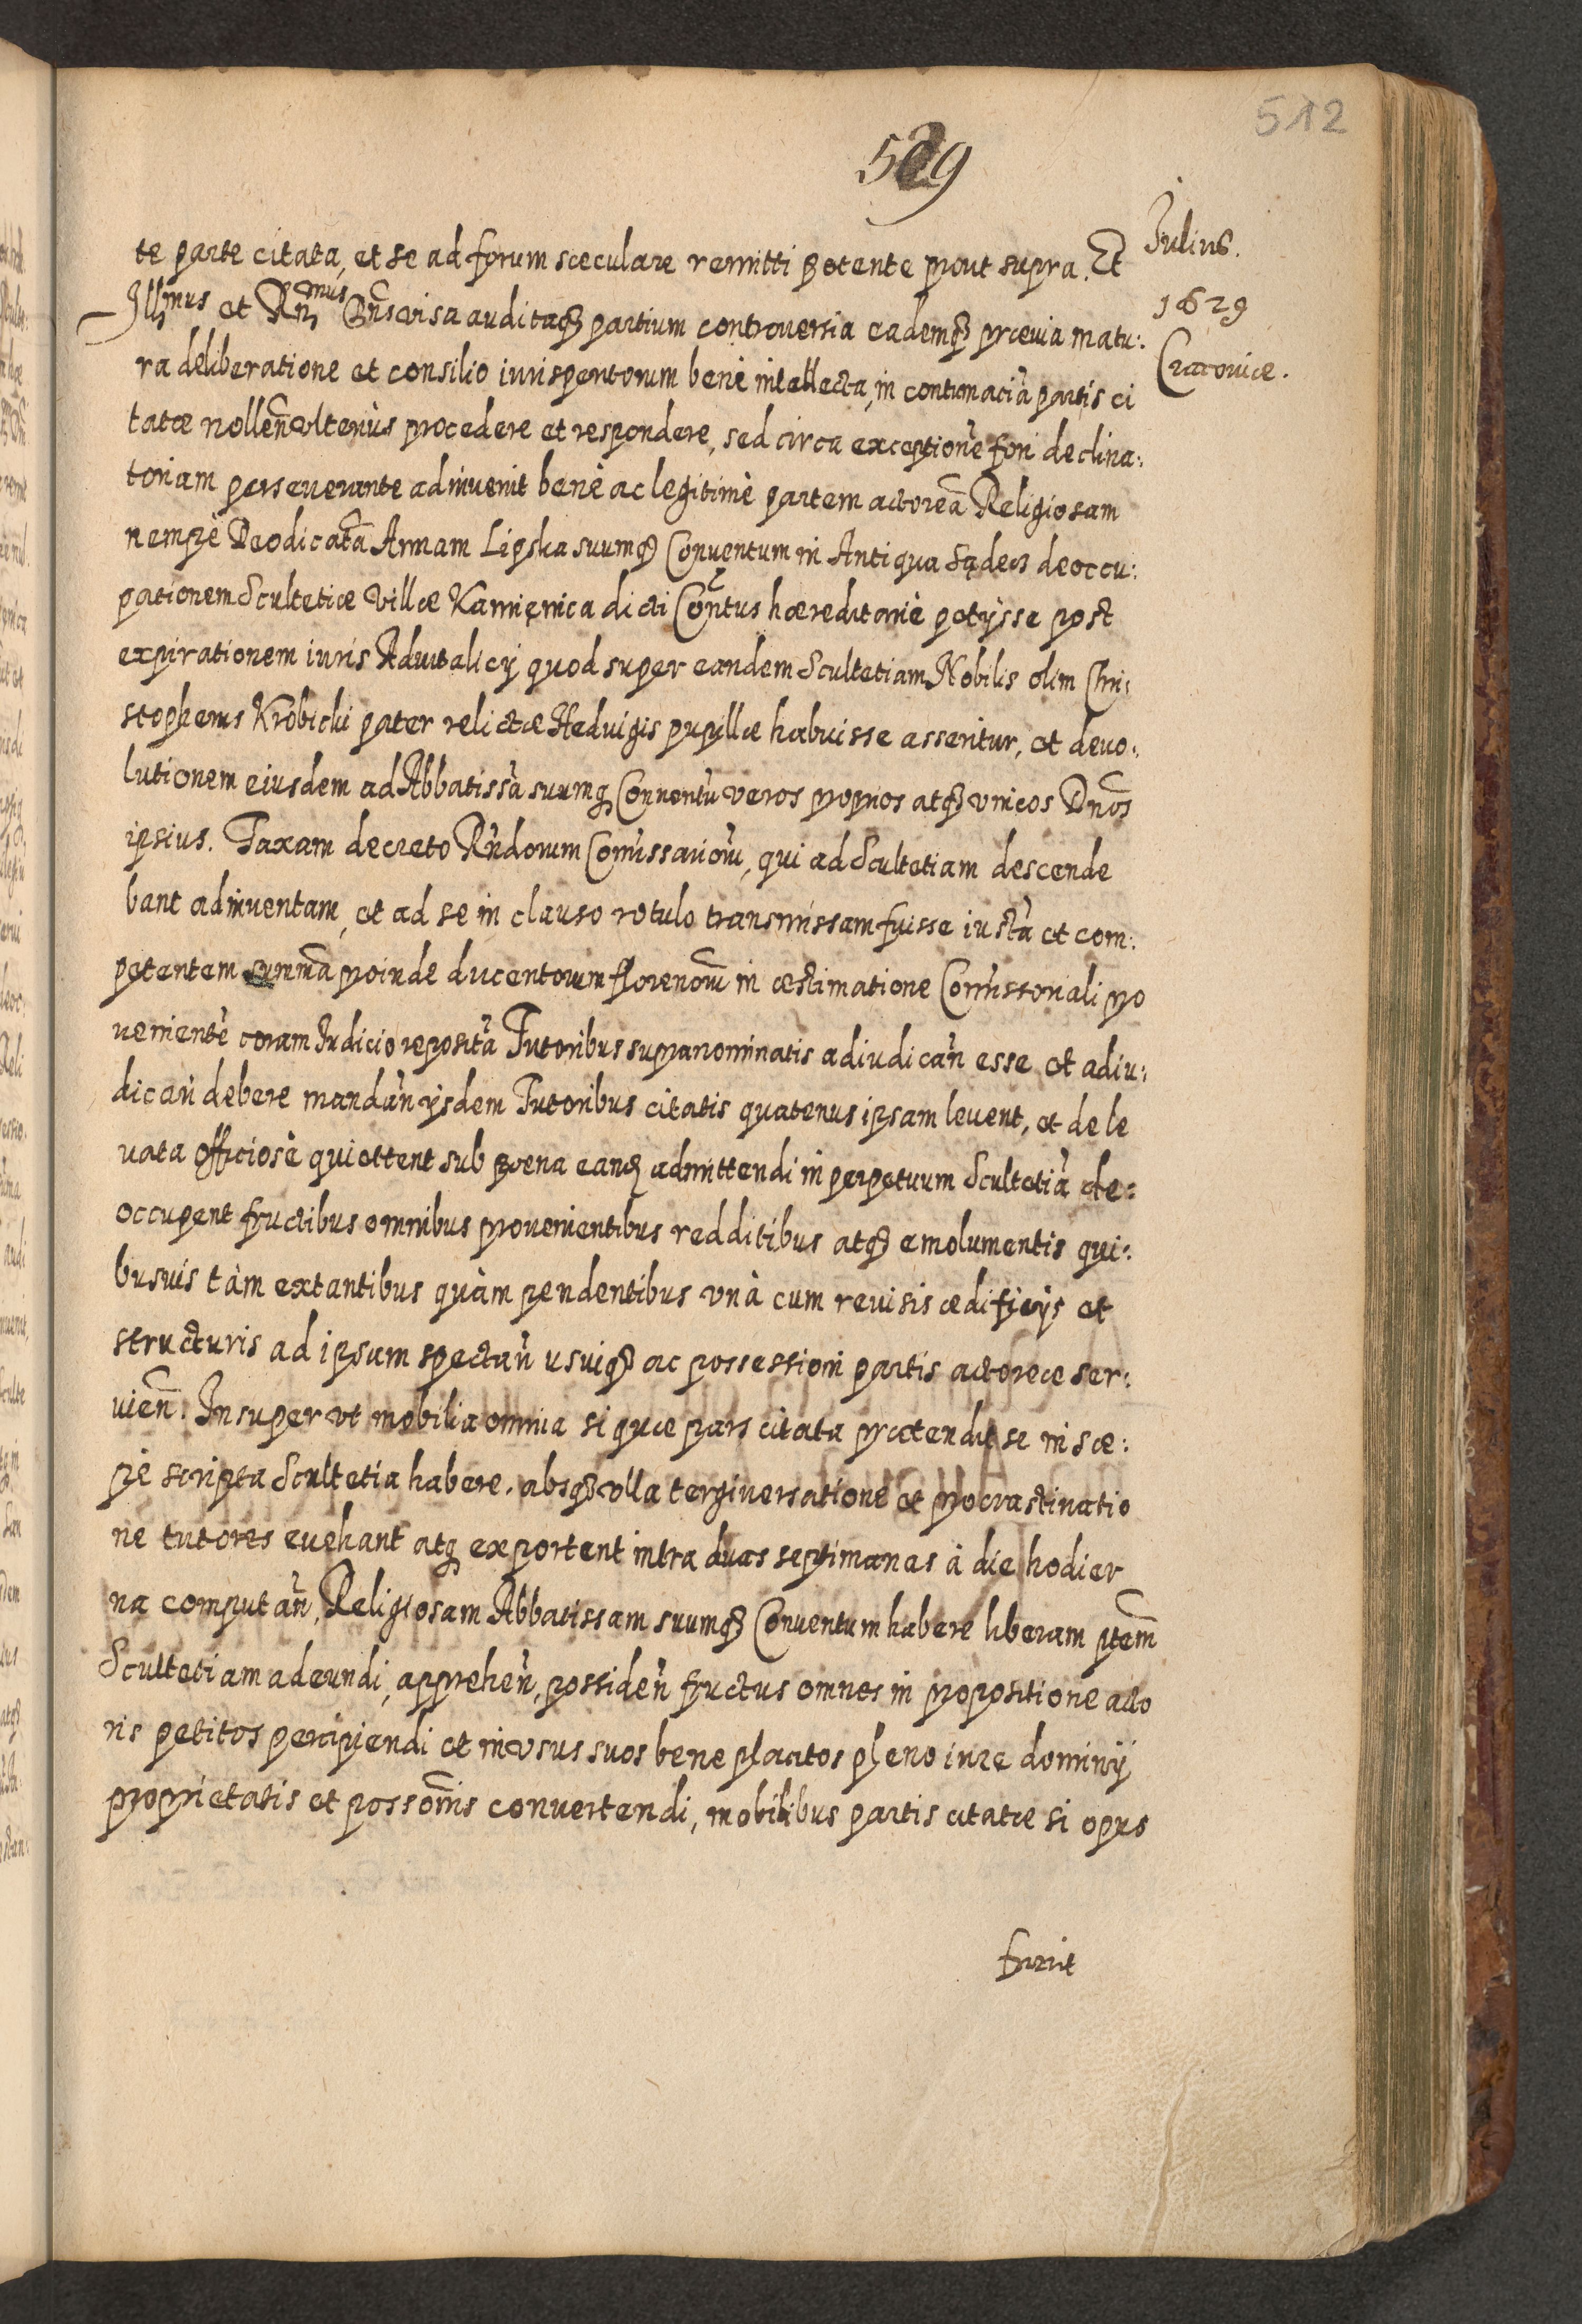 512
509
Julius.
1629
Cracoviæ.
te parte citata, et se ad forum sæculare remitti petente prout supra. Et
Illmus et Rñmus Dñs visa auditaq; partium controuersia eademq; præuia matu:
ra deliberatione et consilio iurisperitorum benè intellecta, in contumatiã partis ci
tatæ nolleñ vlterius procedere et respondere, sed circa exceptionẽ fori declina:
toriam perseuerante adinuenit benè ac legitimè partem actoreã Religiosam
nempè Deodicatã Annam Lipska suumq; Conuentum in Antiqua Sądecz deoccu:
pationem Scultetiæ Villæ Kamięnica dicti Cõntus hæreditariè petijsse post
expirationem iuris Aduitalicij quod super eandem Scultetiam Nobilis olim Chri:
stopherus Krobicki pater relictæ Heduigis pupillæ habuisse asseritur, et deuo:
lutionem eiusdem ad Abbatissã suumq; Conuentũ veros proprios atq; vnicos Dños
ipsius. Taxam decreto Rñdorum Comissarioũ, qui ad Scultetiam descende
bant adinuentam, et ad se in clauso rotulo transmissam fuisse iustã et com:
petentem summã proinde ducentorum florenoũ in æstimatione Comissoriali pro
uenientẽ coram Iudicio repositã Tutoribus supranominatis adiudicañ esse et adiu:
dicañ debere mandañ ijsdem Tutoribus citatis quatenus ipsam leuent, et de le
uata officiosè quiettent sub pœna eanq; admittendi in perpetuum Scultetiã de:
occupent fructibus omnibus prouenientibus redditibus atq; emolumentis qui:
busuis tàm extantibus quàm pendentibus vnà cum reuisis ædificijs et
structuris ad ipsam spectañ usuiq; ac possessioni partis actoreæ ser:
uieñ. Insuper vt mobilia omnia si quæ pars citata prætendit se in sæ:
pè scripta Scultetia habere. absq; vlla tergiuersatione et procrastinatio
ne tutores euehant atq; exportent intra duas septimanas à die hodier
na computañ, Religiosam Abbatissam suumq; Conuentum habere liberam ptem
Scultetiam adeundi, appreheñ, possideñ fructus omnes in propositione acto
ris petitos percipiendi et in vsus suos bene placitos pleno iure dominij
proprietatis et possõnis conuertendi, mobilibus partis citatæ si opus
fuerit